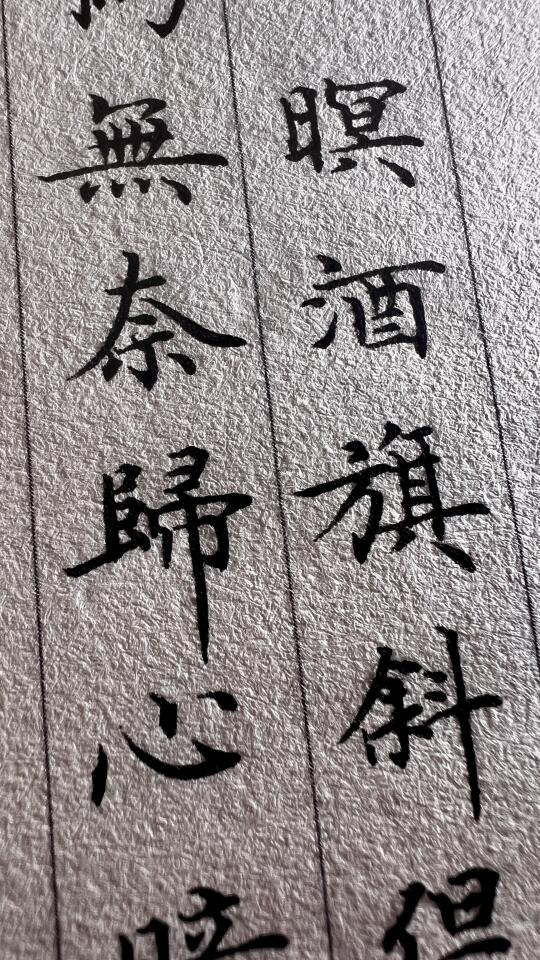 暝酒旗斜但
無奈歸心暗